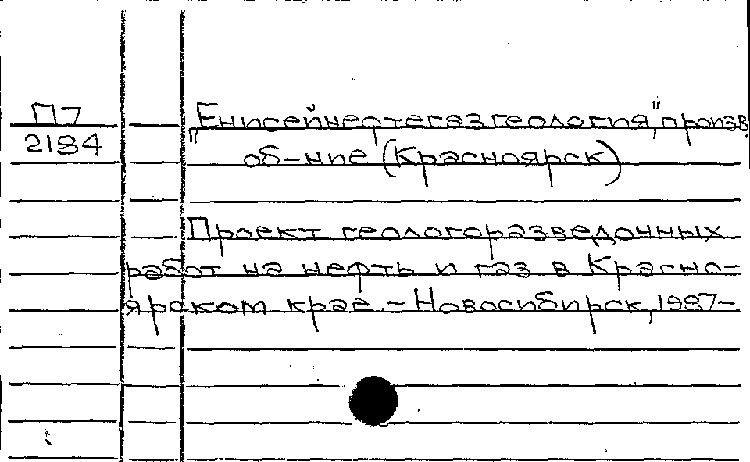 П7
2184
"Енисейнефтегазгеология", произв.
об-ние (Красноярск)
Проект геологоразведочных
работ на нефть и газ в Красно-
ярском крае. - Новосибирск, 1987-